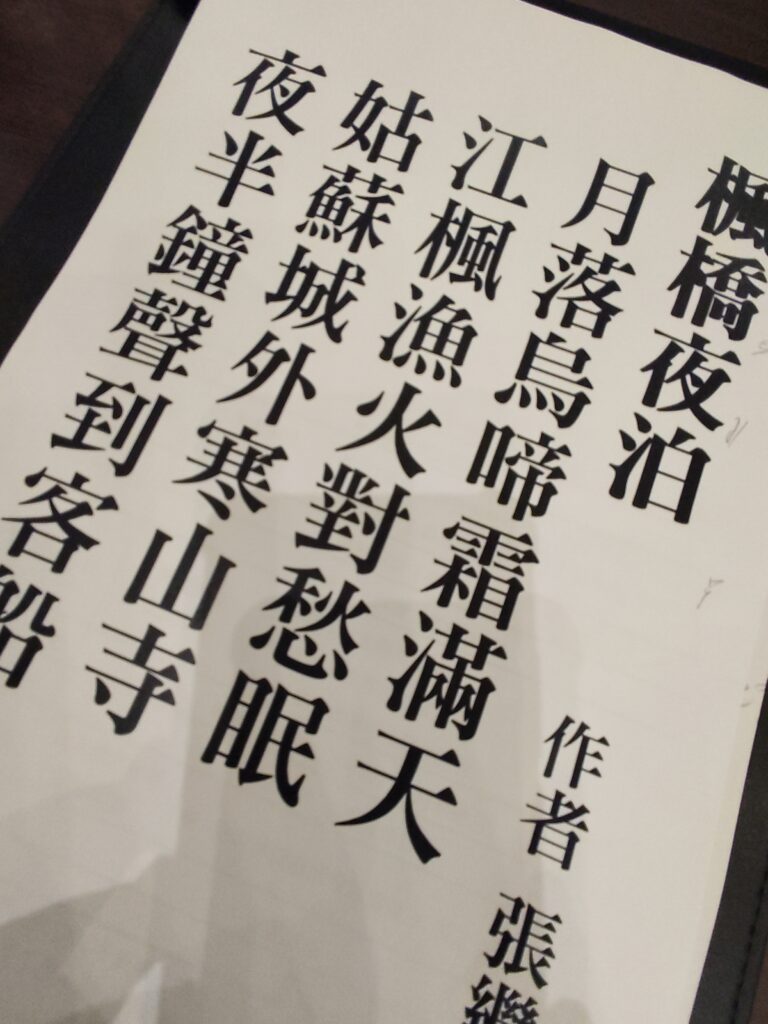 楓橋夜泊
作者 張繼
月落烏啼霜滿天
江楓漁火對愁眠
姑蘇城外寒山寺
夜半鐘聲到客船